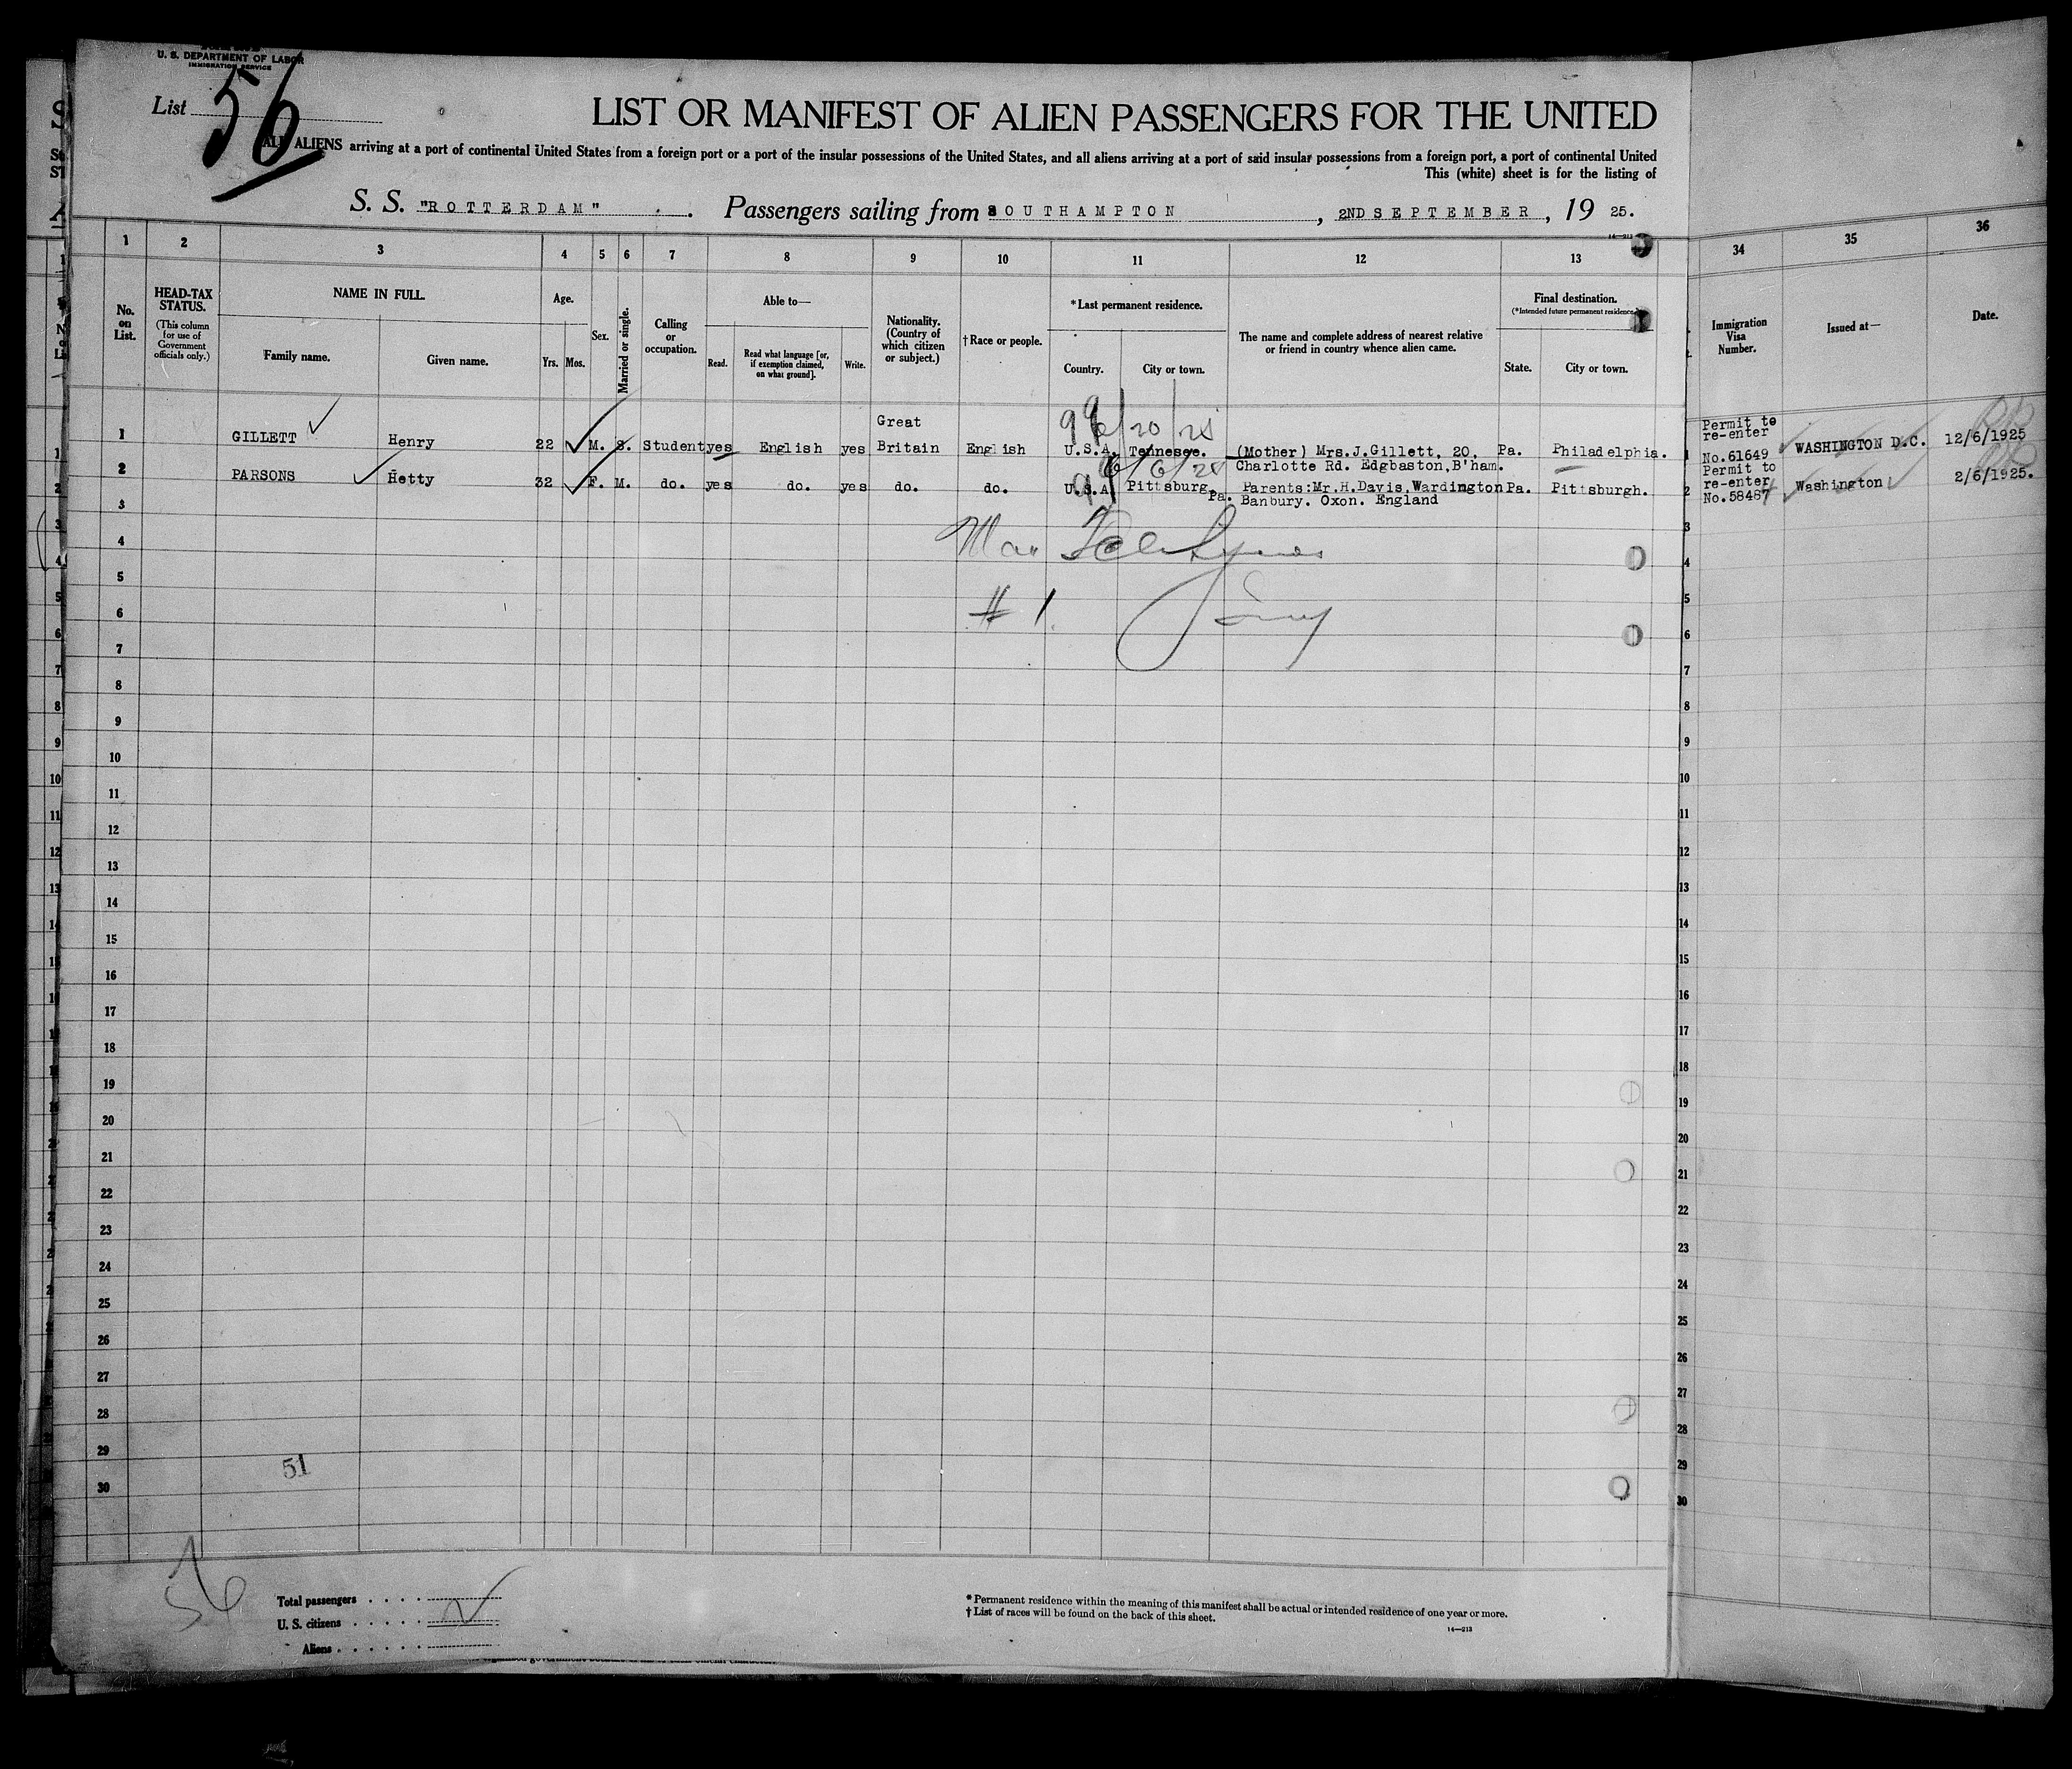 U. S. DEPARTMENT OF LABOR
IMMIGRATION SERVICE
List 56
LIST OR MANIFEST OF ALIEN PASSENGERS FOR THE UNITED
ALL ALIENS arriving at a port of continental United States from a foreign port or a port of the insular possessions of the United States, and all aliens arriving at a port of said insular possessions from a foreign port, a port of continental United
This (white) sheet is for the listing of
S. S. "ROTTERDAM" . Passengers sailing from SOUTHAMPTON , 2ND SEPTEMBER , 19 25.
14—213
1 2 3 4 5 6 7 8 9 10 11 12 13 34 35 36
No. on List.
HEAD-TAX STATUS.
(This column for use of Government officials only.)
NAME IN FULL.
Family name. Given name.
Age.
Yrs. Mos.
Sex.
Married or single.
Calling or occupation.
Able to—
Read. Read what language [or, if exemption claimed, on what ground]. Write.
Nationality. (Country of which citizen or subject.)
†Race or people.
*Last permanent residence.
Country. City or town.
The name and complete address of nearest relative or friend in country whence alien came.
Final destination.
(*Intended future permanent residence.)
State. City or town.
Immigration Visa Number.
Issued at—
Date.
99 6/20/25
1 GILLETT Henry 22 M. S. Student yes English yes Great Britain English U.S.A. Tennesee. (Mother) Mrs.J.Gillett, 20, Charlotte Rd. Edgbaston,B'ham. Pa. Philadelphia. Permit to re-enter No.61649 WASHINGTON D.C. 12/6/1925
2 PARSONS Hetty 32 F. M. do. yes do. yes do. do. U.S.A Pittsburg Pa. Parents:Mr.H.Davis,Wardington Banbury. Oxon. England Pa. Pittsburgh. Permit to re-enter No.58487 Washington 2/6/1925.
3
4
5
6 # 1
7
8
9
10
11
12
13
14
15
16
17
18
19
20
21
22
23
24
25
26
27
28
29
51
30
56
Total passengers
U. S. citizens
Aliens
* Permanent residence within the meaning of this manifest shall be actual or intended residence of one year or more.
† List of races will be found on the back of this sheet.
14—213